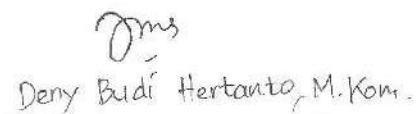 Deny Budi Hertanto, M.Kom.